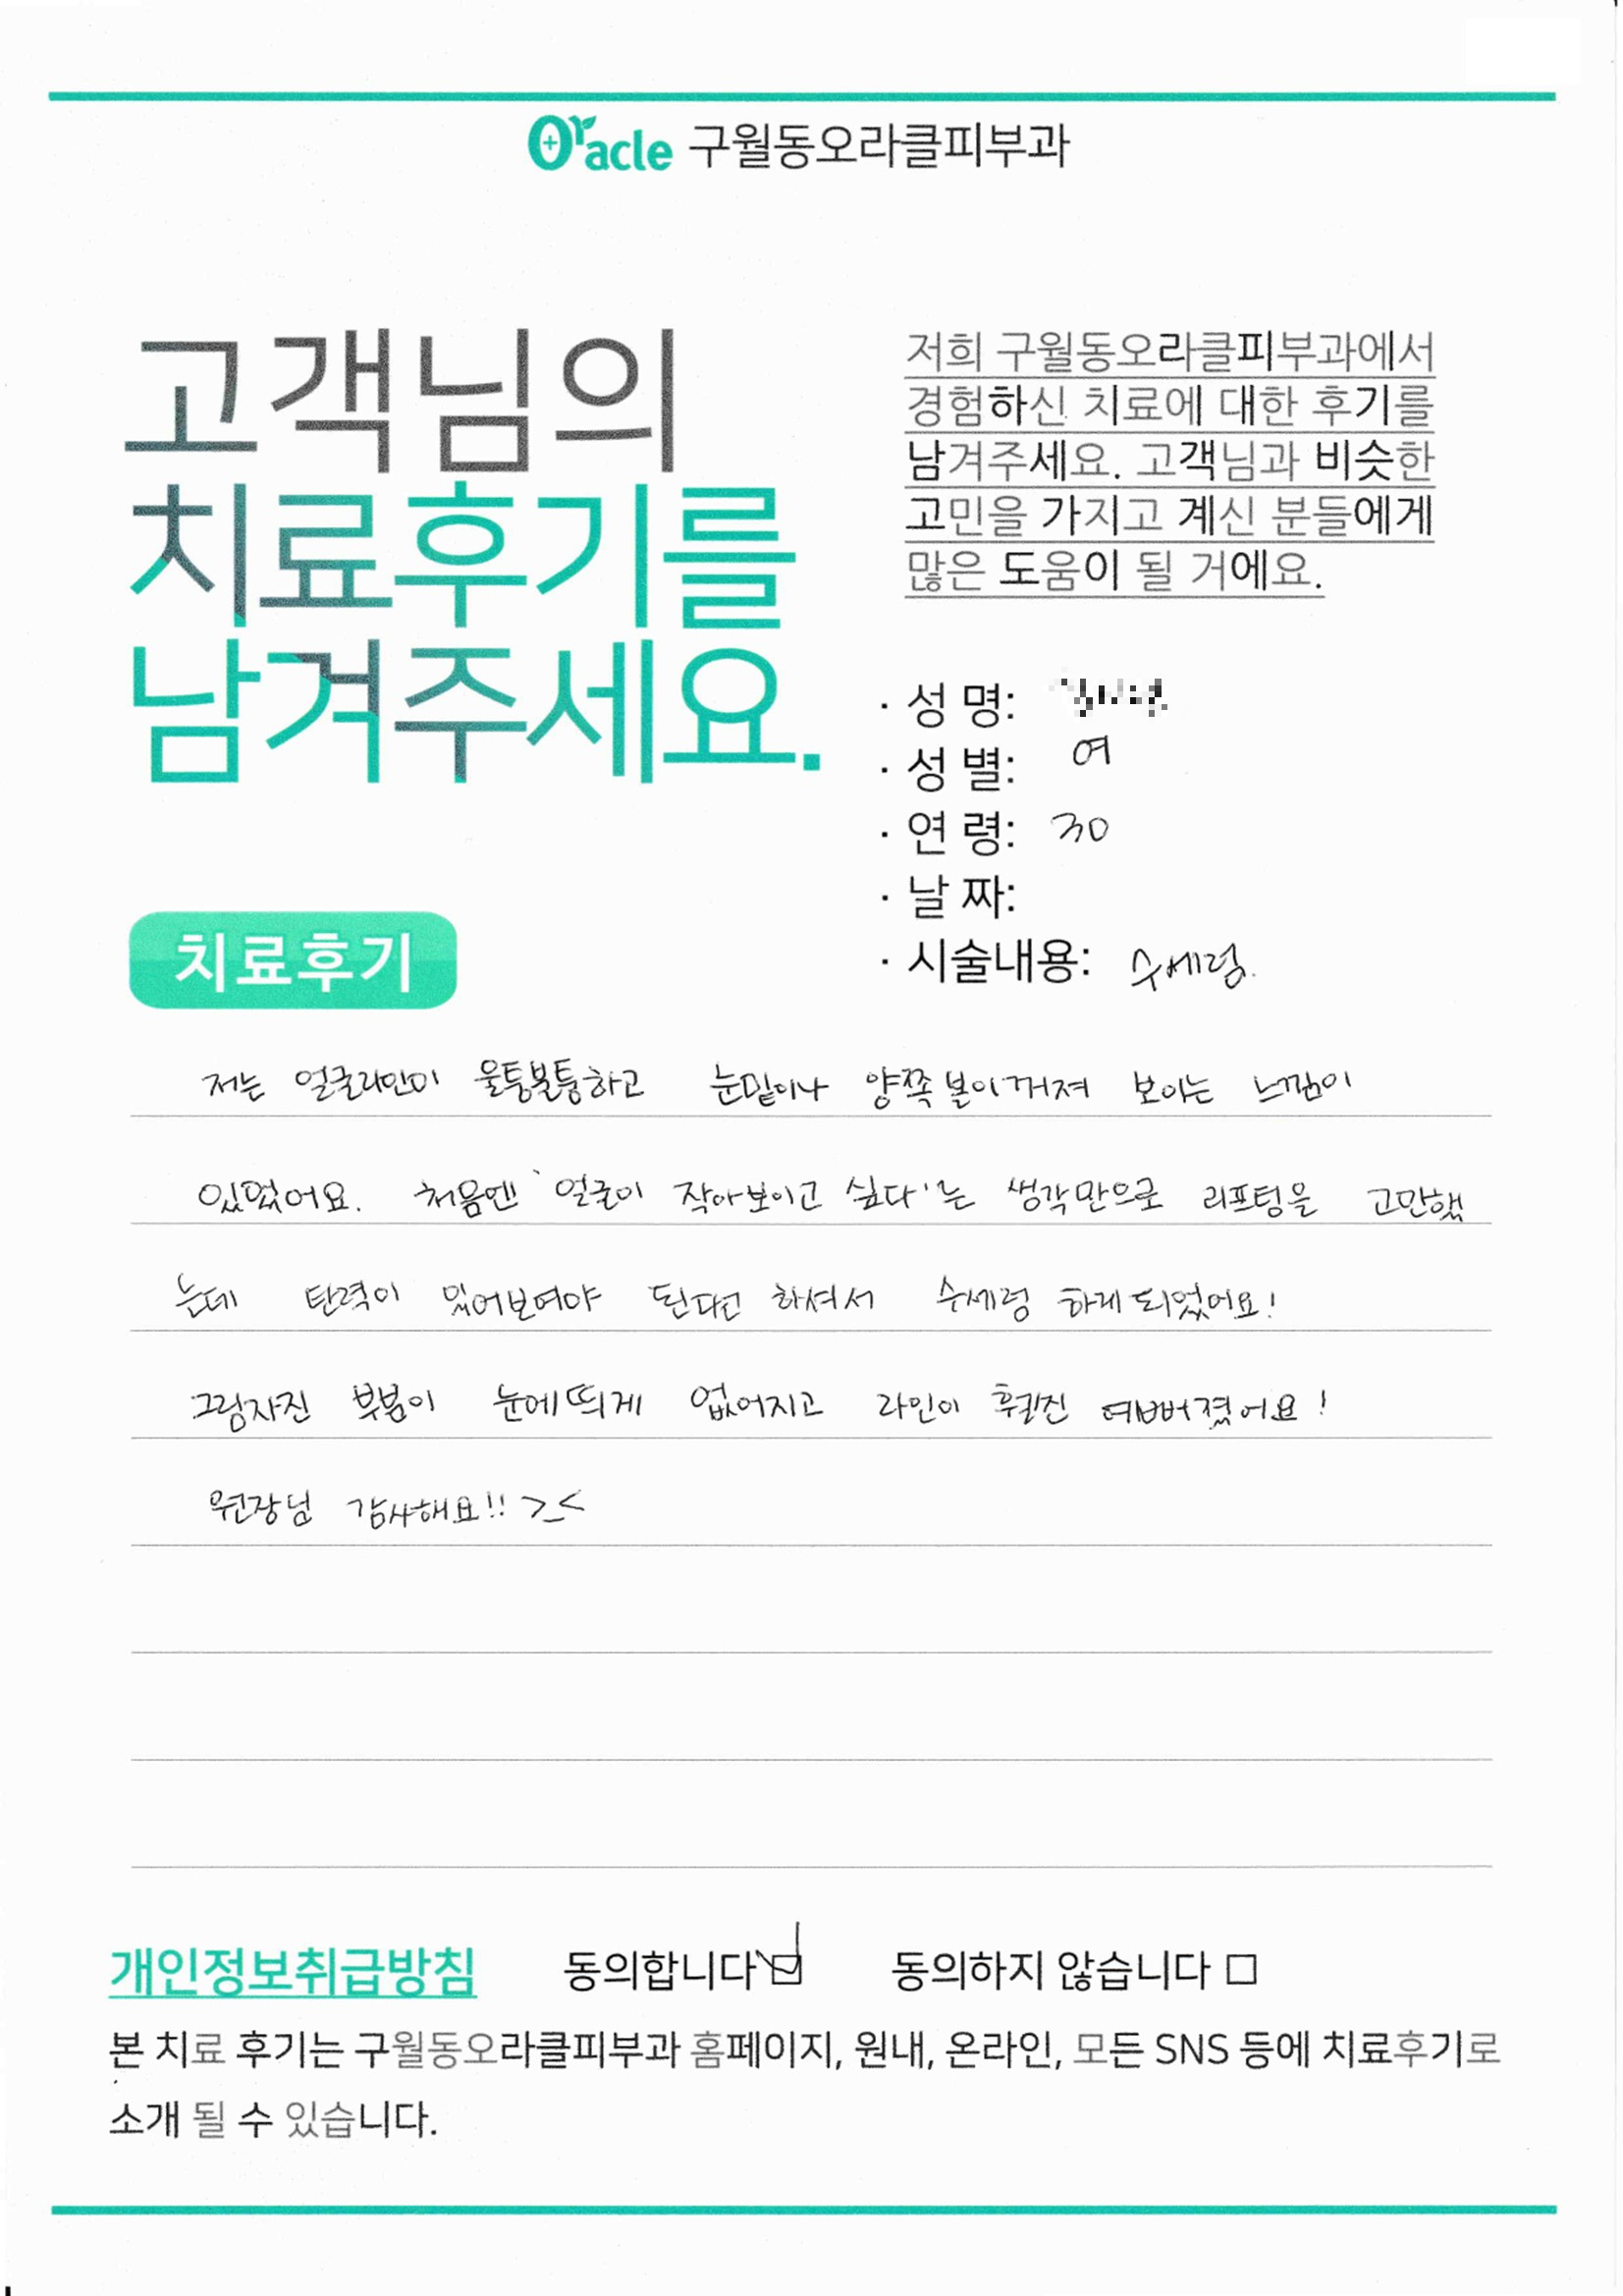 Oracle 구월동오라클피부과
고객님의
치료후기를
남겨주세요.
저희 구월동오라클피부과에서
경험하신 치료에 대한 후기를
남겨주세요. 고객님과 비슷한
고민을 가지고 계신 분들에게
많은 도움이 될 거에요.
· 성 명:
· 성 별: 여
· 연 령: 30
· 날 짜:
· 시술내용: 수세령.
치료후기
저는 얼굴라인이 울퉁불퉁하고 눈밑이나 양쪽 볼이 꺼져 보이는 느낌이
있었어요. 처음엔 '얼굴이 작아보이고 싶다'는 생각만으로 리프팅을 고민했
는데 탄력이 있어보여야 된다고 하셔서 수세령 하게 되었어요!
그림자진 부분이 눈에 띄게 없어지고 라인이 훨씬 예뻐졌어요!
원장님 감사해요!! >_<
개인정보취급방침 동의합니다 동의하지 않습니다
본 치료 후기는 구월동오라클피부과 홈페이지, 원내, 온라인, 모든 SNS 등에 치료후기로
소개 될 수 있습니다.